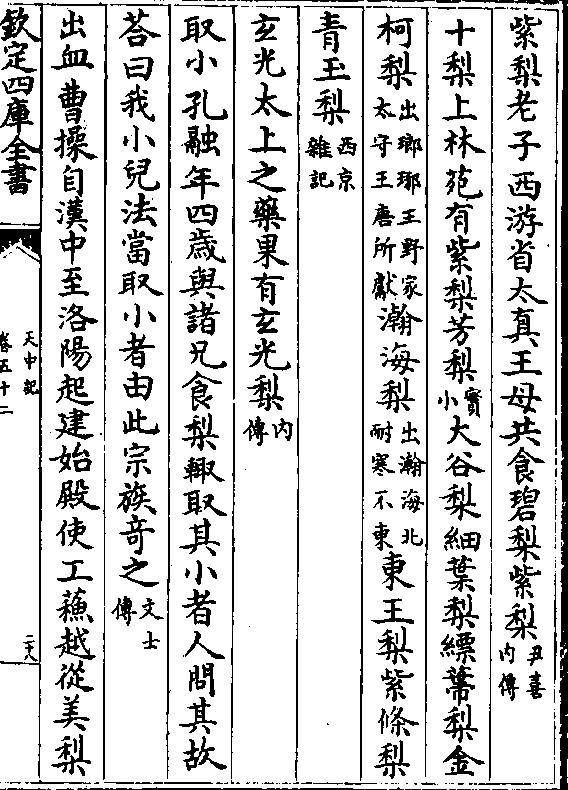 紫梨老子西游省太真王母共食碧梨紫梨尹喜内傳
十梨上林苑有紫梨芳梨實小大谷梨細葉梨縹蔕梨金
柯梨出瑯琊王野家太守王唐所獻瀚海梨出瀚海北耐寒不東東王梨紫條梨
青玉梨西京雜記
玄光太上之藥果有玄光梨内傳
取小孔融年四歲與諸兄食梨輙取其小者人問其故
荅曰我小兒法當取小者由此宗族奇之文士傳
出血曹操自漢中至洛陽起建始殿使工蘓越從美梨
欽定四庫全書
天中記
卷五十二